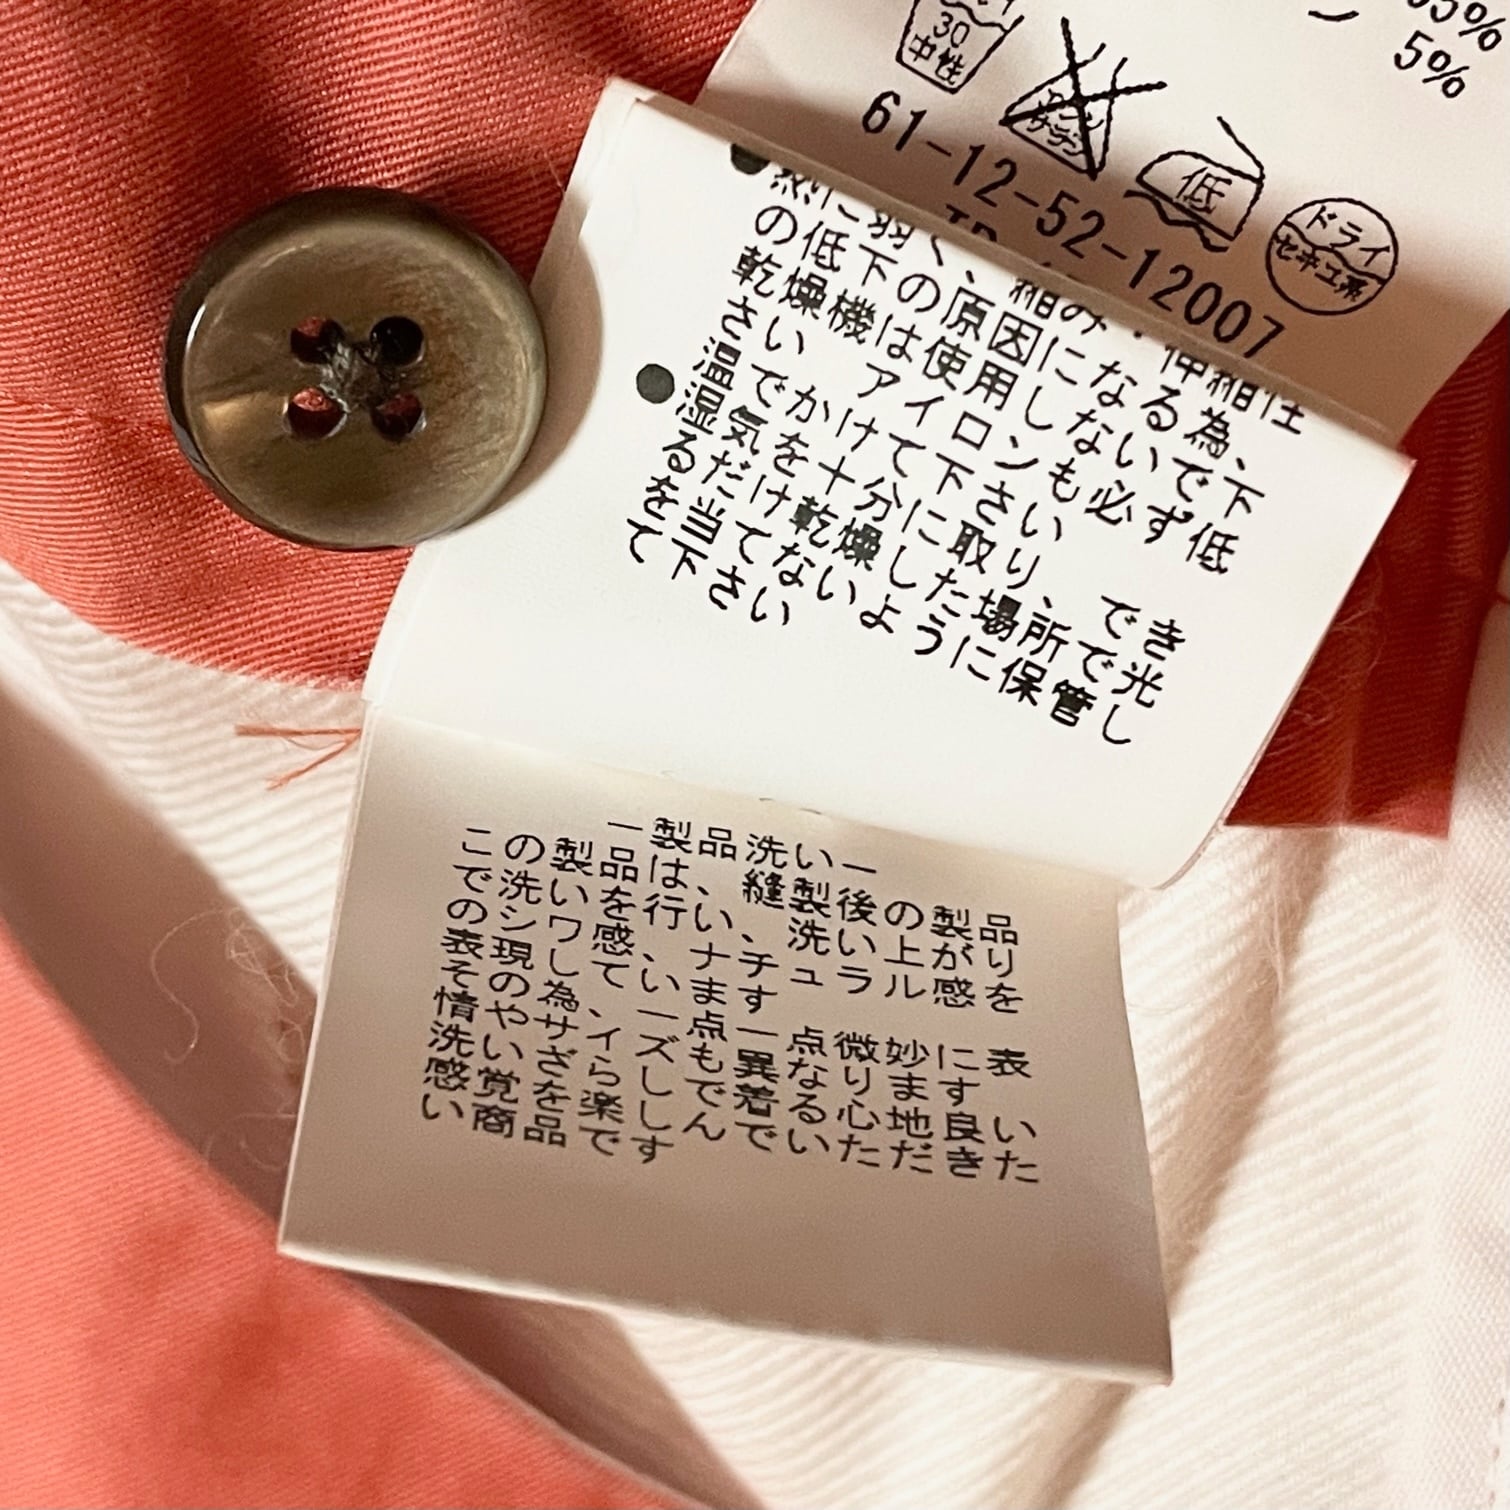 5%
30
中性
エンソ
サラシ
低
ドライ
セキユ系
61-12-52-12007
熱に弱く、縮み・伸縮性
の低下の原因になる為、
乾燥機は使用しないで下
さい アイロンも必ず低
温でかけて下さい
●湿気を十分に取り、でき
るだけ乾燥した場所で光
を当てないように保管し
て下さい
ー製品洗いー
この製品は、縫製後の製品
で洗いを行い、洗い上がり
のシワ感、ナチュラル感を
表現しています
その為、一点一点微妙に表
情やサイズも異なります
洗いざらしでん着心地良い
感覚を楽しんでいただきた
い商品です